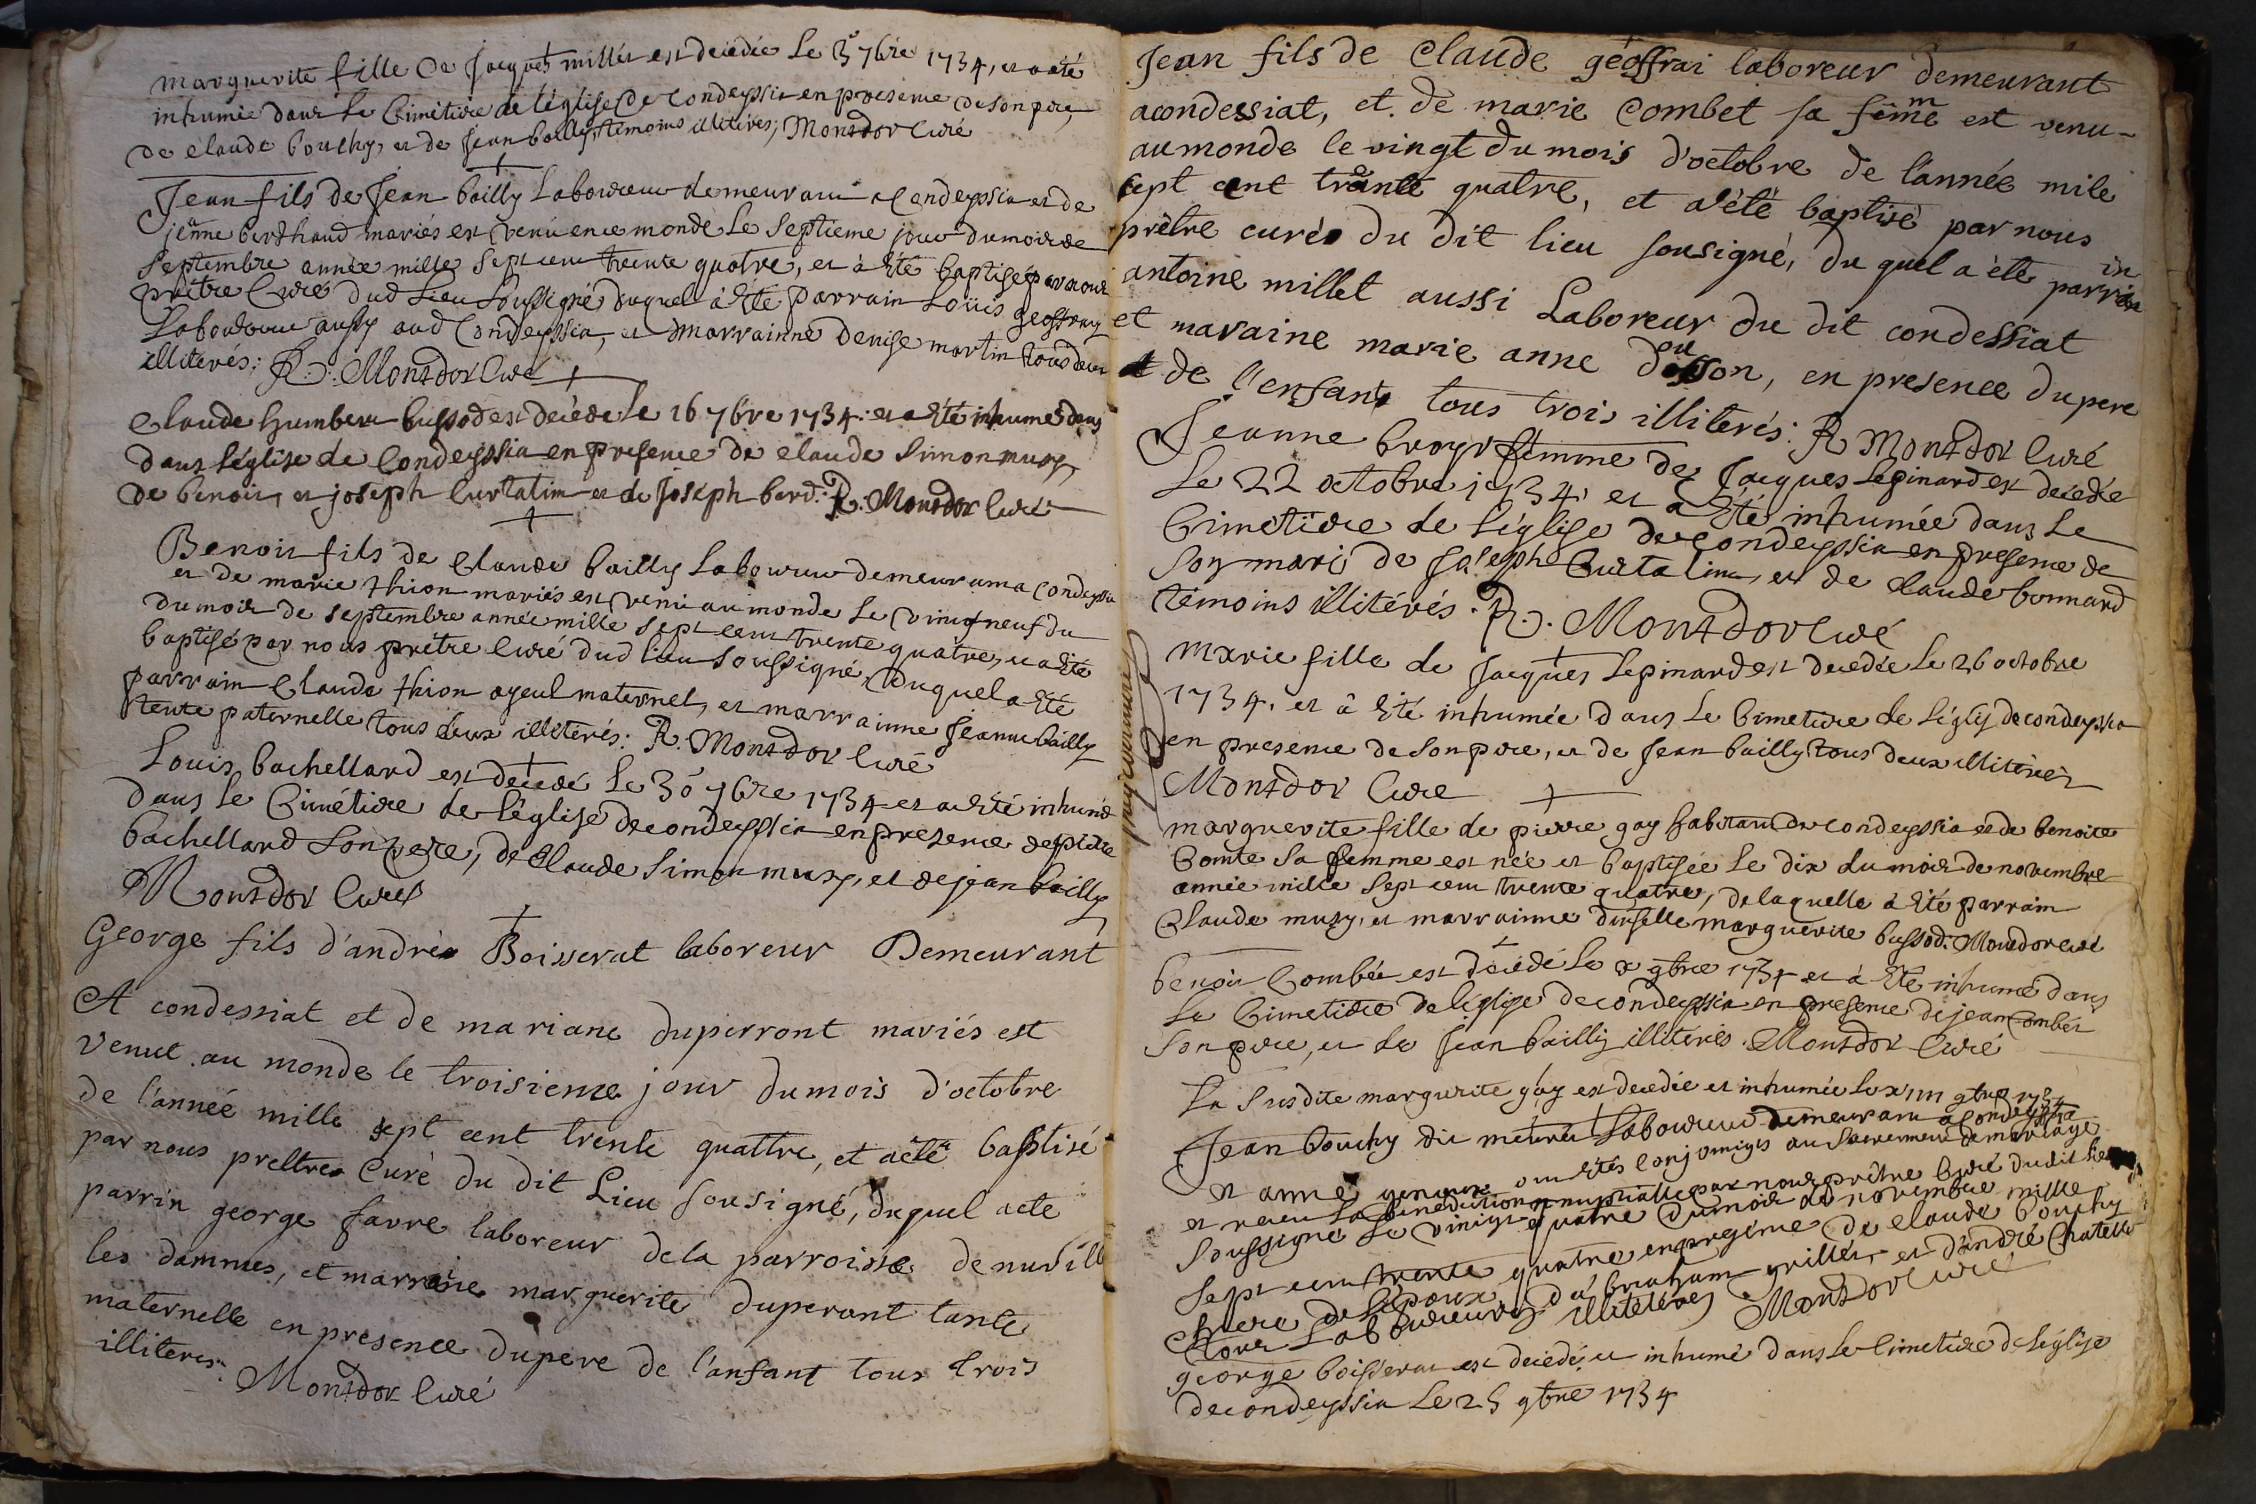 marguerite fille de Jacques millet est decedée Le 3e 7bre 1734, et a eté
inhumée dans Le Cimetiere de l'église de Condeyssia en presence de son pere,
de claude bouchy, et de Jean bailly temoins illiterés; Montdor Curé
Jean fils de Jean bailly Laboureur demeurant a Condeyssia et de
jeanne berthaud mariés est venu en ce monde Le septieme jour du mois de
septembre année mille sept cent trente quatre, et à été baptisé par nous
prêtre Curé dud Lieu soussigné duquel à été parrain Loüis geoffray
Laboureur aussy aud Condeyssia, et marrainne denise martin tous deux
illiterés; R. Montdor Curé
Claude humbert bussod est decedé le 16 7bre 1734. et a été inhumé dans
dans l'église de Condeyssia en presence de claude Simon musy,
de benoit, et joseph Curtalin et de Joseph berd. R. Montdor Curé
Benoit fils de Claude bailly Laboureur demeurant a Condeyssia
et de marie thion mariés est venu au monde le vingt neuf du
du mois de septembre année mille sept cent trente quatre, et a été
baptisé par nous prêtre Curé dud lieu soussigné, duquel a été
parrain Claude thion ayeul maternel, et marrainne Jeanne bailly
tente paternelle tous deux illiterés: R. Montdor Curé
Louis bachellard est decedé Le 30 7bre 1734 et a été inhumé
dans Le Cimétiere de L'église de condeyssia en presence de pierre
bachellard son pere, de Claude Simon musy, et de jean bailly
Montdor Curé
George fils d'andrée Boisserat laboreur Demeurant
A condessiat et de mariane duperront mariés est
Venut au monde le troisieme jour du mois d'octobre
de l'anneé mille sept cent trente quattre, et aété baptisé
par nous prettre Curé du dit Lieu sousigné, duquel aété
parrin george favre laboreur de la parroisse de nuvill
les dammes, et marraine marguerite duperant tante
maternelle en presence du pere de l'anfant tous trois
illiteres. Montdor Curé
Jean fils de Claude géoffrai laboreur demeurant
acondessiat, et de marie Combet sa femme est venu
au monde le vingt du mois d'octobre de l'année mile
sept cent trante quatre, et a été baptisé par nous
prêtre curé du dit lieu sousigné, du quel a été parrin
antoine millet aussi Laboreur du dit condessiat
et maraine marie anne dousson, en presence du pere
de l'enfant tous trois illiterés. R Montdor Curé
Jeanne broyr femme de Jacques Lepinard est decedée
Le 22 octobre 1734, et a été inhumée dans Le
Cimetiere de l'église de condeyssia en presence de
son mari, de joseph Curtalin, et de claude bonnard
témoins illitérés. R. Montdor Curé
Marie fille de Jacques Lepinard est decedée Le 26 octobre
1734, et â été inhumée dans Le Cimetiere de l'églis de condeyssia
en presence de son pere, et de Jean bailly tous deux illiterés
Montdor Curé
marguerite fille de pierre gay habitant de condeyssia et de benoite
Comte sa femme est née et baptisée Le dix du mois de novembre
année mille sept cent trente quatre, de laquelle à été parrain
Claude musy, et marrainne dmselle marguerite bussod: Montdor curé
benoit Combét est decedé Le x 9bre 1734 et à été inhumé dans
Le Cimetiere de l'église de condeyssia en presence de jean Combét
son pere, et de Jean bailly illiterés. Montdor Curé
La susdite margurite gay est decedée et inhumée Le xiiii 9bre 1734
Jean bouchy dit Laboureur demeurant a Condeyssia
et anne ont étés conjoingts au sacrement de mariage
et receu la benediction nuptialle par nous prêtre Curé dudit lieu
soussigné Le vingt quatre du mois de novembre mille
sept cent trente quatre en presence de Claude bouchy
frere de l'epoux, d'abraham grillet, et d'andré Chatelle
tous Laboureurs illiterés Montdor Curé
george boisserat est decedé, et inhumé dans Le Cimetiere de l'église
de condeyssia Le 25 9bre 1734